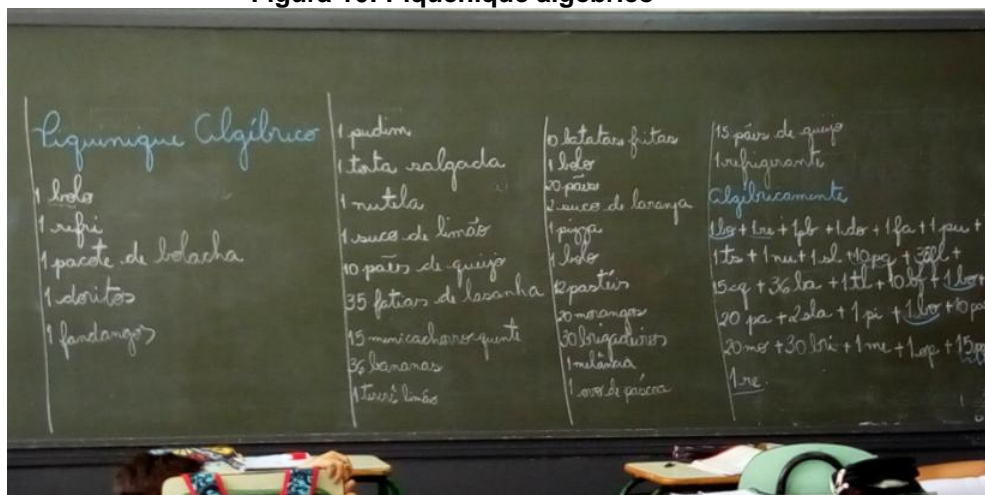 Figura 10: Piquenique algébrico
Piquinique Algébrico
1 bolo
1 refri
1 pacote de bolacha
1 doritos
1 fandangos
1 pudim
1 torta salgada
1 nutela
1 suco de limão
10 pães de queijo
35 fatias de lasanha
15 minicachorro quente
36 bananas
1 Tererê limão
10 batatas fritas
1 bolo
20 pães
2 suco de laranja
1 pizza
1 bolo
12 pastéis
20 morangos
30 brigadeiros
1 melância
1 ovo de páscoa
15 pães de queijo
1 refrigerante
Algébricamente
1bo + 1re + 1pb + 1do + 1fa + 1pu +
1ts + 1nu + 1sl + 10pq + 35fl +
15cq + 36ba + 1tl + 10bf + 1bo +
20 pa + 2sla + 1 pi + 1bo +
20mo + 30bri + 1me + 1op + 15pq
1re.